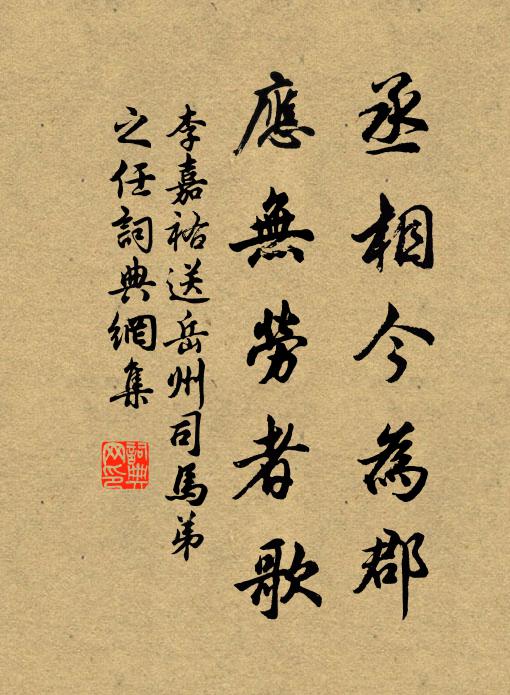 丞相今為郡
應無勞者歌
李嘉祐送岳州司馬弟
之任詞典網集
詞典
网印